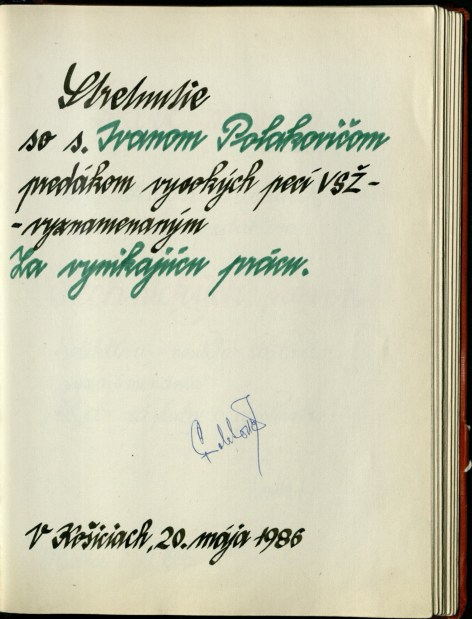 Stretnutie
so s. Ivanom Polakovičom
predákom vysokých pecí VSŽ-
-vyznamenaným
Za vynikajúcu prácu.
V Košiciach, 20. mája 1986